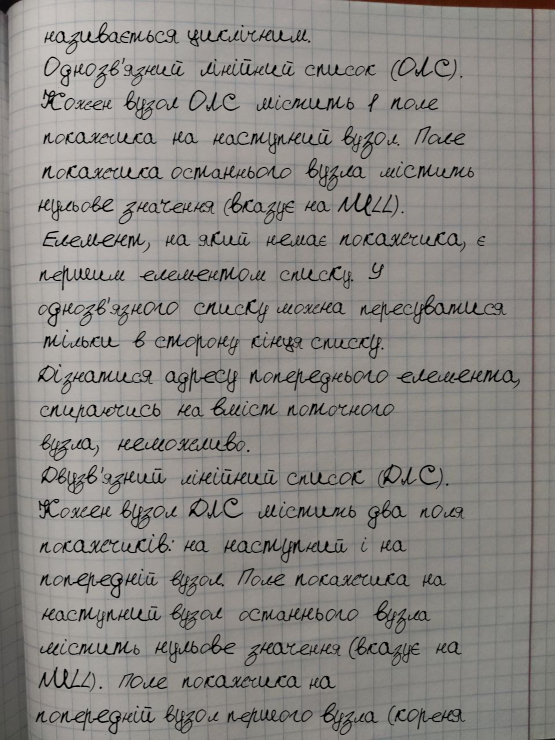 називається циклічним.
Однозв'язний лінійний список (ОЛС).
Кожен вузол ОЛС містить 1 поле
покажчика на наступний вузол. Поле
покажчика останнього вузла містить
нульове значення (вказує на NULL).
Елемент, на який немає покажчика, є
першим елементом списку. У
однозв'язного списку можна пересуватися
тільки в сторону кінця списку.
Дізнатися адресу попереднього елемента,
спираючись на вміст поточного
вузла, неможливо.
Двузв'язний лінійний список (ДЛС).
Кожен вузол ДЛС містить два поля
покажчиків: на наступний і на
попередній вузол. Поле покажчика на
наступний вузол останнього вузла
містить нульове значення (вказує на
NULL). Поле покажчика на
попередній вузол першого вузла (кореня